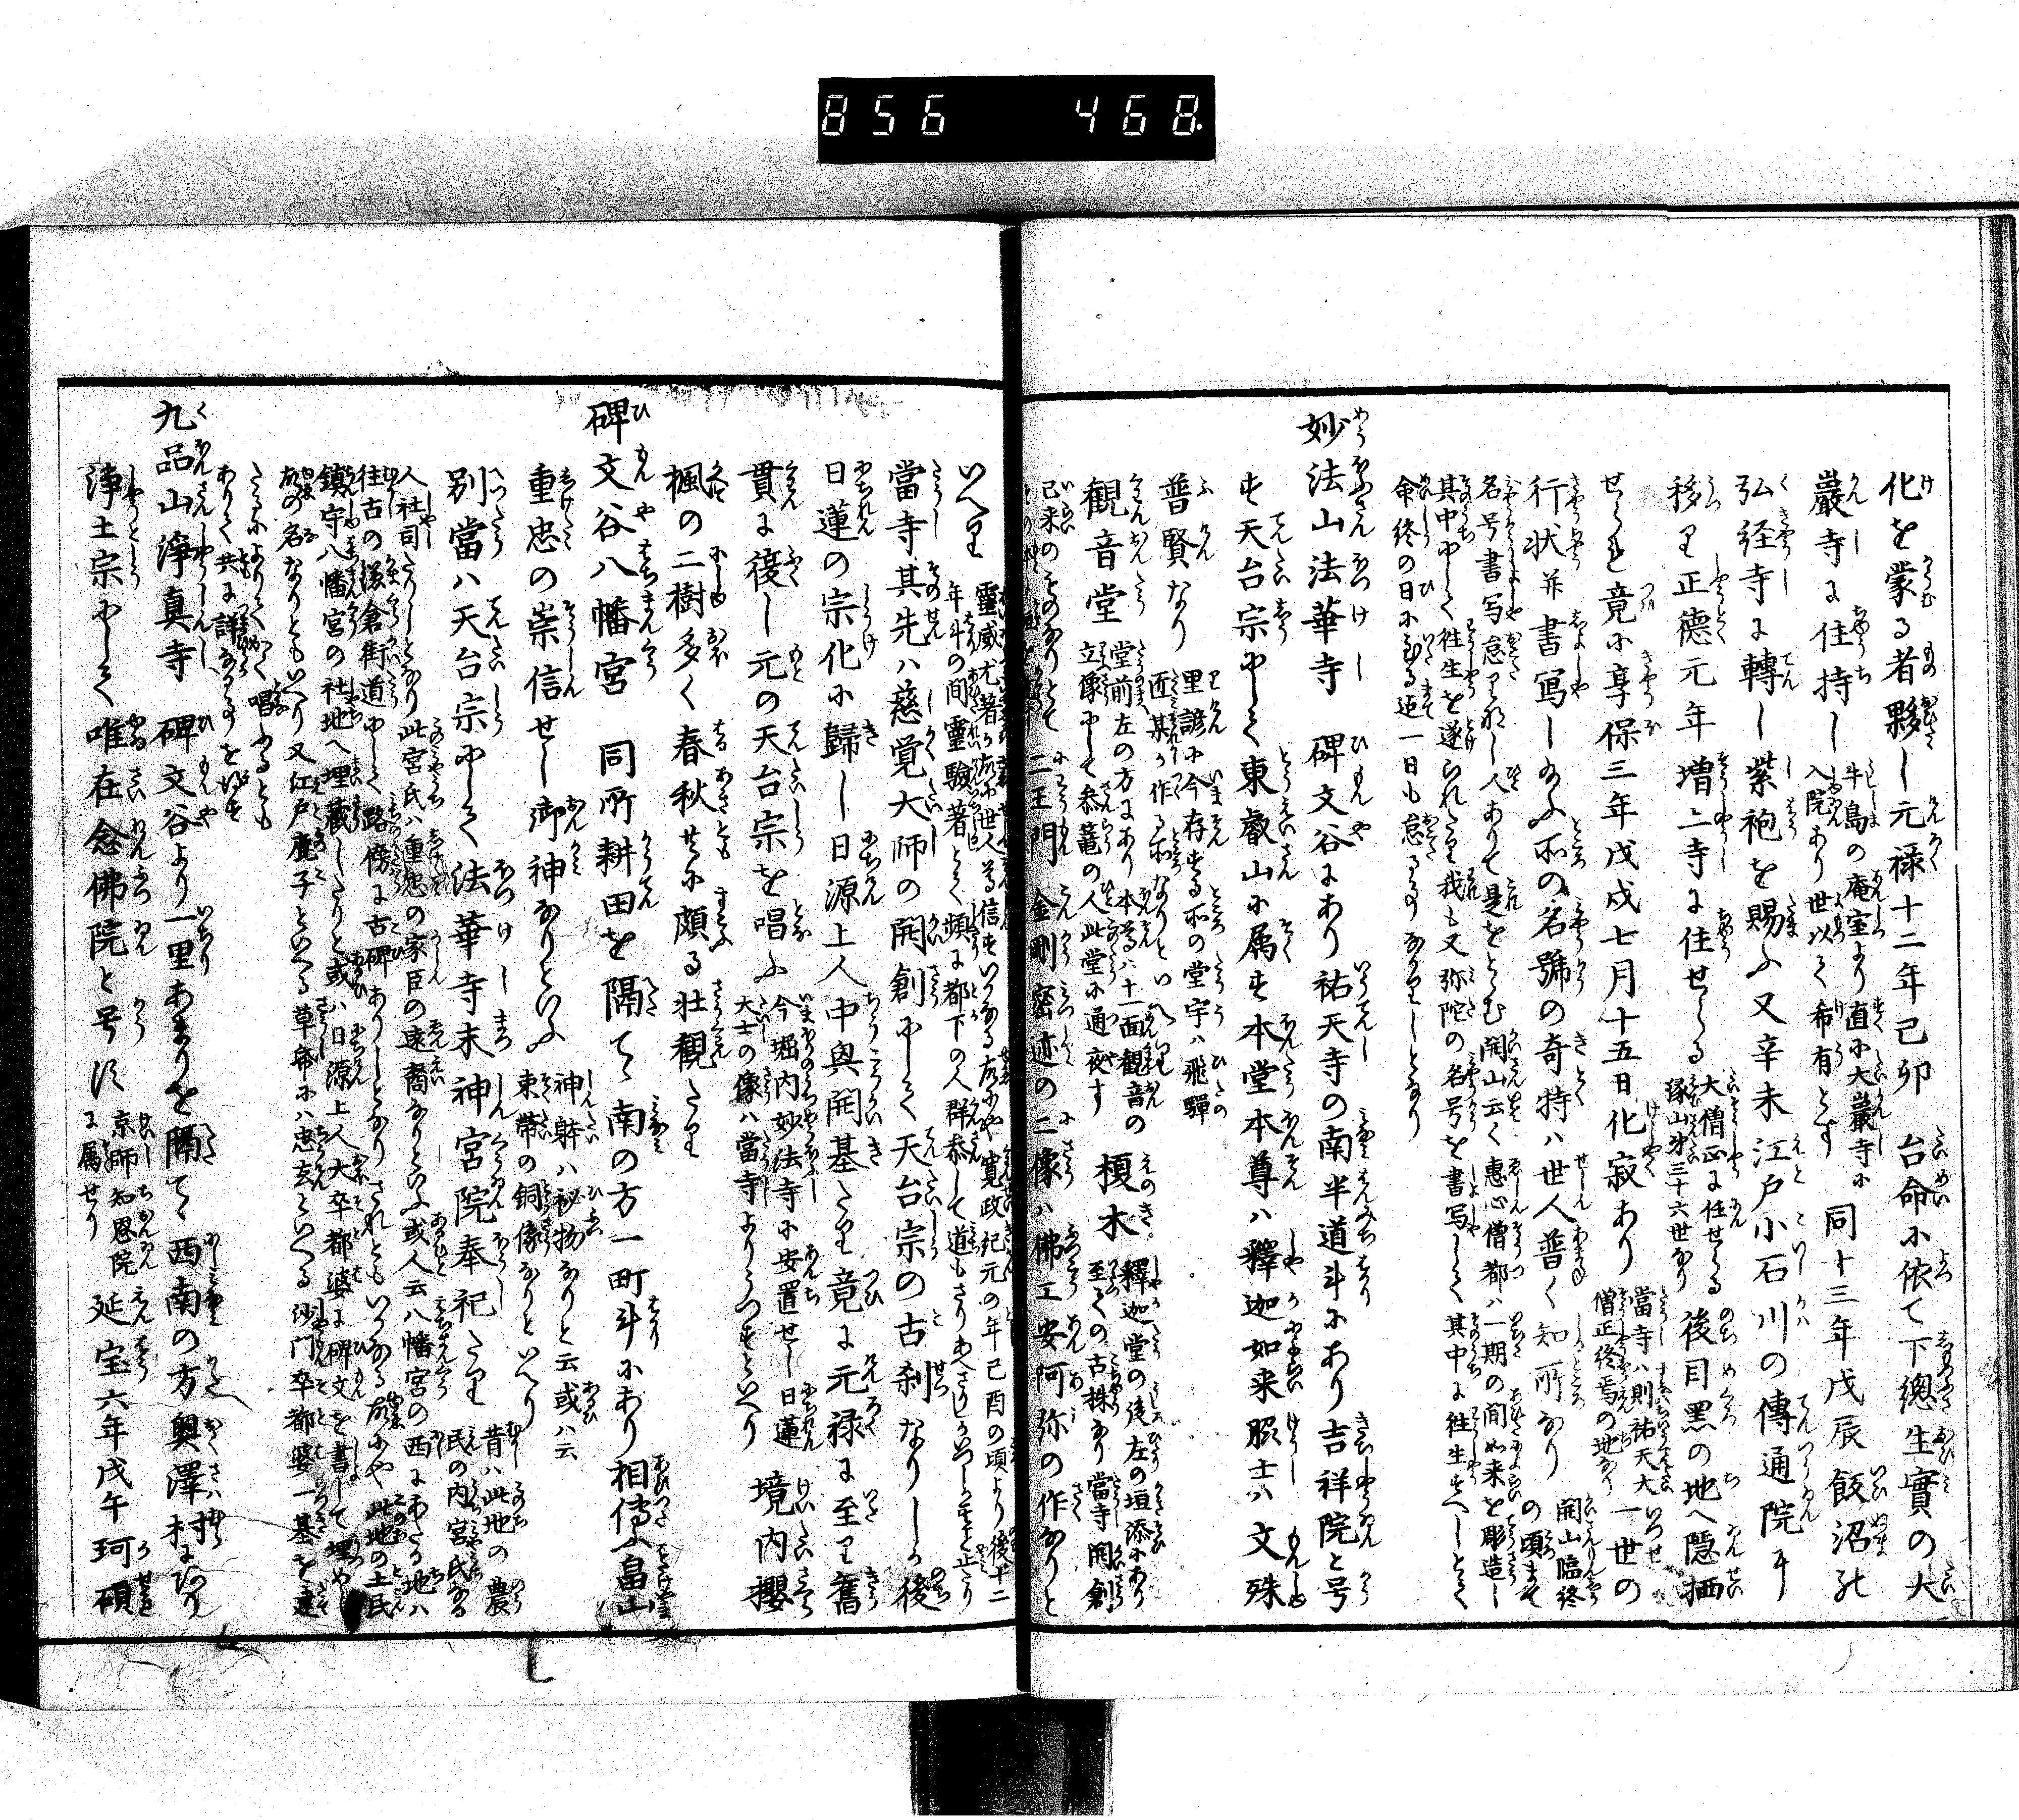 856 468
化を蒙る者夥し元禄十二年己卯 台命に依て下總生實の大
巖寺に住持し 牛島の庵室より直に大巖寺に
入院あり世以て希有とす 同十三年戊辰飯沼の
弘経寺に轉し紫袍を賜ふ又辛未江戸小石川の傳通院に
移り正徳元年増上寺に住せらる 大僧正に任せらる
縁山第三十六世なり 後目黒の地へ隠栖
せられ竟に享保三年戊戌七月十五日化寂あり 當寺ハ則祐天大
僧正終焉の地なり 一世の
行状并書寫し給ふ所の名號の奇特ハ世人普く知所なり 開山臨終
の頃まて
名号書写怠りなし人ありて是をとゝむ開山云く惠心僧都ハ一期の間如来を彫造し
其中にして往生を遂られたり我も又弥陀の名号を書写して其中に往生すへしとて
命終の日にいたる迄一日も怠る事なかりしとなり
妙法山法華寺 碑文谷にあり祐天寺の南半道斗にあり吉祥院と号
す天台宗にして東叡山に属す本堂本尊ハ釋迦如来脇士ハ文殊
普賢なり 里諺に今存する所の堂宇ハ飛騨
匠某の作る所なりといへり
觀音堂 堂前左の方にあり本尊ハ十一面觀音の
立像にして参篭の人此堂に通夜す 榎木 釋迦堂の後左の垣添にあり
至ての古株なり當寺開創
已来のものなりとて 二王門 金剛密迹の二像ハ佛工安阿弥の作なりと
いへり 靈威尤著き故に世人尊信すいかなる故にや寛政紀元の年己酉の頃より後十二
年斗の間靈驗著とて頻に都下の人群参して道もさりあへさりしかいつしか止たり
當寺其先ハ慈覚大師の開創にして天台宗の古刹なりしか後
日蓮の宗化に歸し日源上人中興開基たり竟に元禄に至り舊
貫に復し元の天台宗を唱ふ 今堀内妙法寺に安置せし日蓮
大士の像ハ當寺よりうつすといへり 境内櫻
楓の二樹多く春秋共に頗る壮觀たり
碑文谷八幡宮 同所耕田を隔て南の方一町斗にあり相傳ふ畠山
重忠の崇信せし御神なりといふ 神躰ハ祕物なりと云或ハ云
束帯の銅像なりといへり
別當ハ天台宗にして法華寺末神宮院奉祀たり 昔ハ此地の農
民の内宮氏なる
人社司たりしとなり此宮氏ハ重忠の家臣の遠裔なりといふ或人云八幡宮の西にあたる地ハ
往古の鎌倉街道にして路傍に古碑ありしとなりされともいかなる故にや此地の土民
鎮守八幡宮の社地へ埋蔵したりと或ハ日源上人大卒都婆に碑文を書して埋めし
故の名なりともいへり又江戸鹿子といへる草帋にハ忠玄といへる沙門卒都婆一基を建
たるによりてかく唱ふるとも
ありて共に詳なる事を得す
九品山浄真寺 碑文谷より一里あまりを隔て西南の方奥澤村にあり
浄土宗にして唯在念佛院と号す 京師知恩院
に属せり 延宝六年戊午珂碩